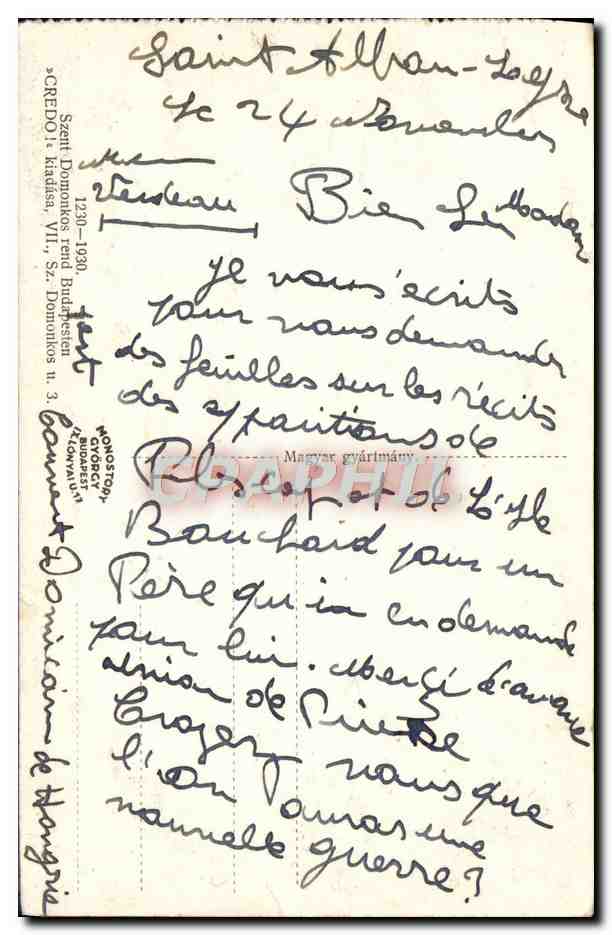 Saint Alban-Leysse
le 24 Novembre
Verdeau
Bien Madame
je vous écrits
pour vous demander
des feuilles sur les récits
des apparitions de
et de L'Ile
Bouchard pour un
Père qui m'en demande
pour lui. Merci d'avance
union de Prière
Croyez vous que
l'on auras une
nouvelle guerre?
Couvent Dominicain de Hongrie
1230—1930.
Szent Domonkos rend Budapesten
»CREDO!« kiadása, VII., Sz. Domonkos u. 3.
MONOSTORY
GYÖRGY
BUDAPEST
Magyar gyártmány.
CPAPHIL